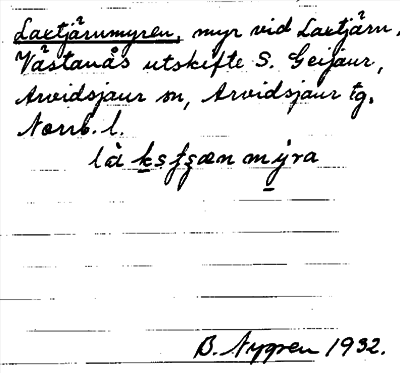 Laxtjärnmyren, myr vid Laxtjärn,
Västanås utskifte S. Geijaur,
Arvidsjaur sn, Arvidsjaur tg.
Norrb. l.
B. Nygren 1932.